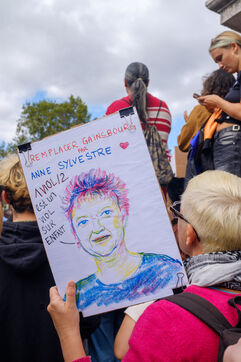 REMPLACER GAINSBOURG
PAR
ANNE SYLVESTRE
1 VIOL/2
EST UN
VIOL
SUR
ENFANT